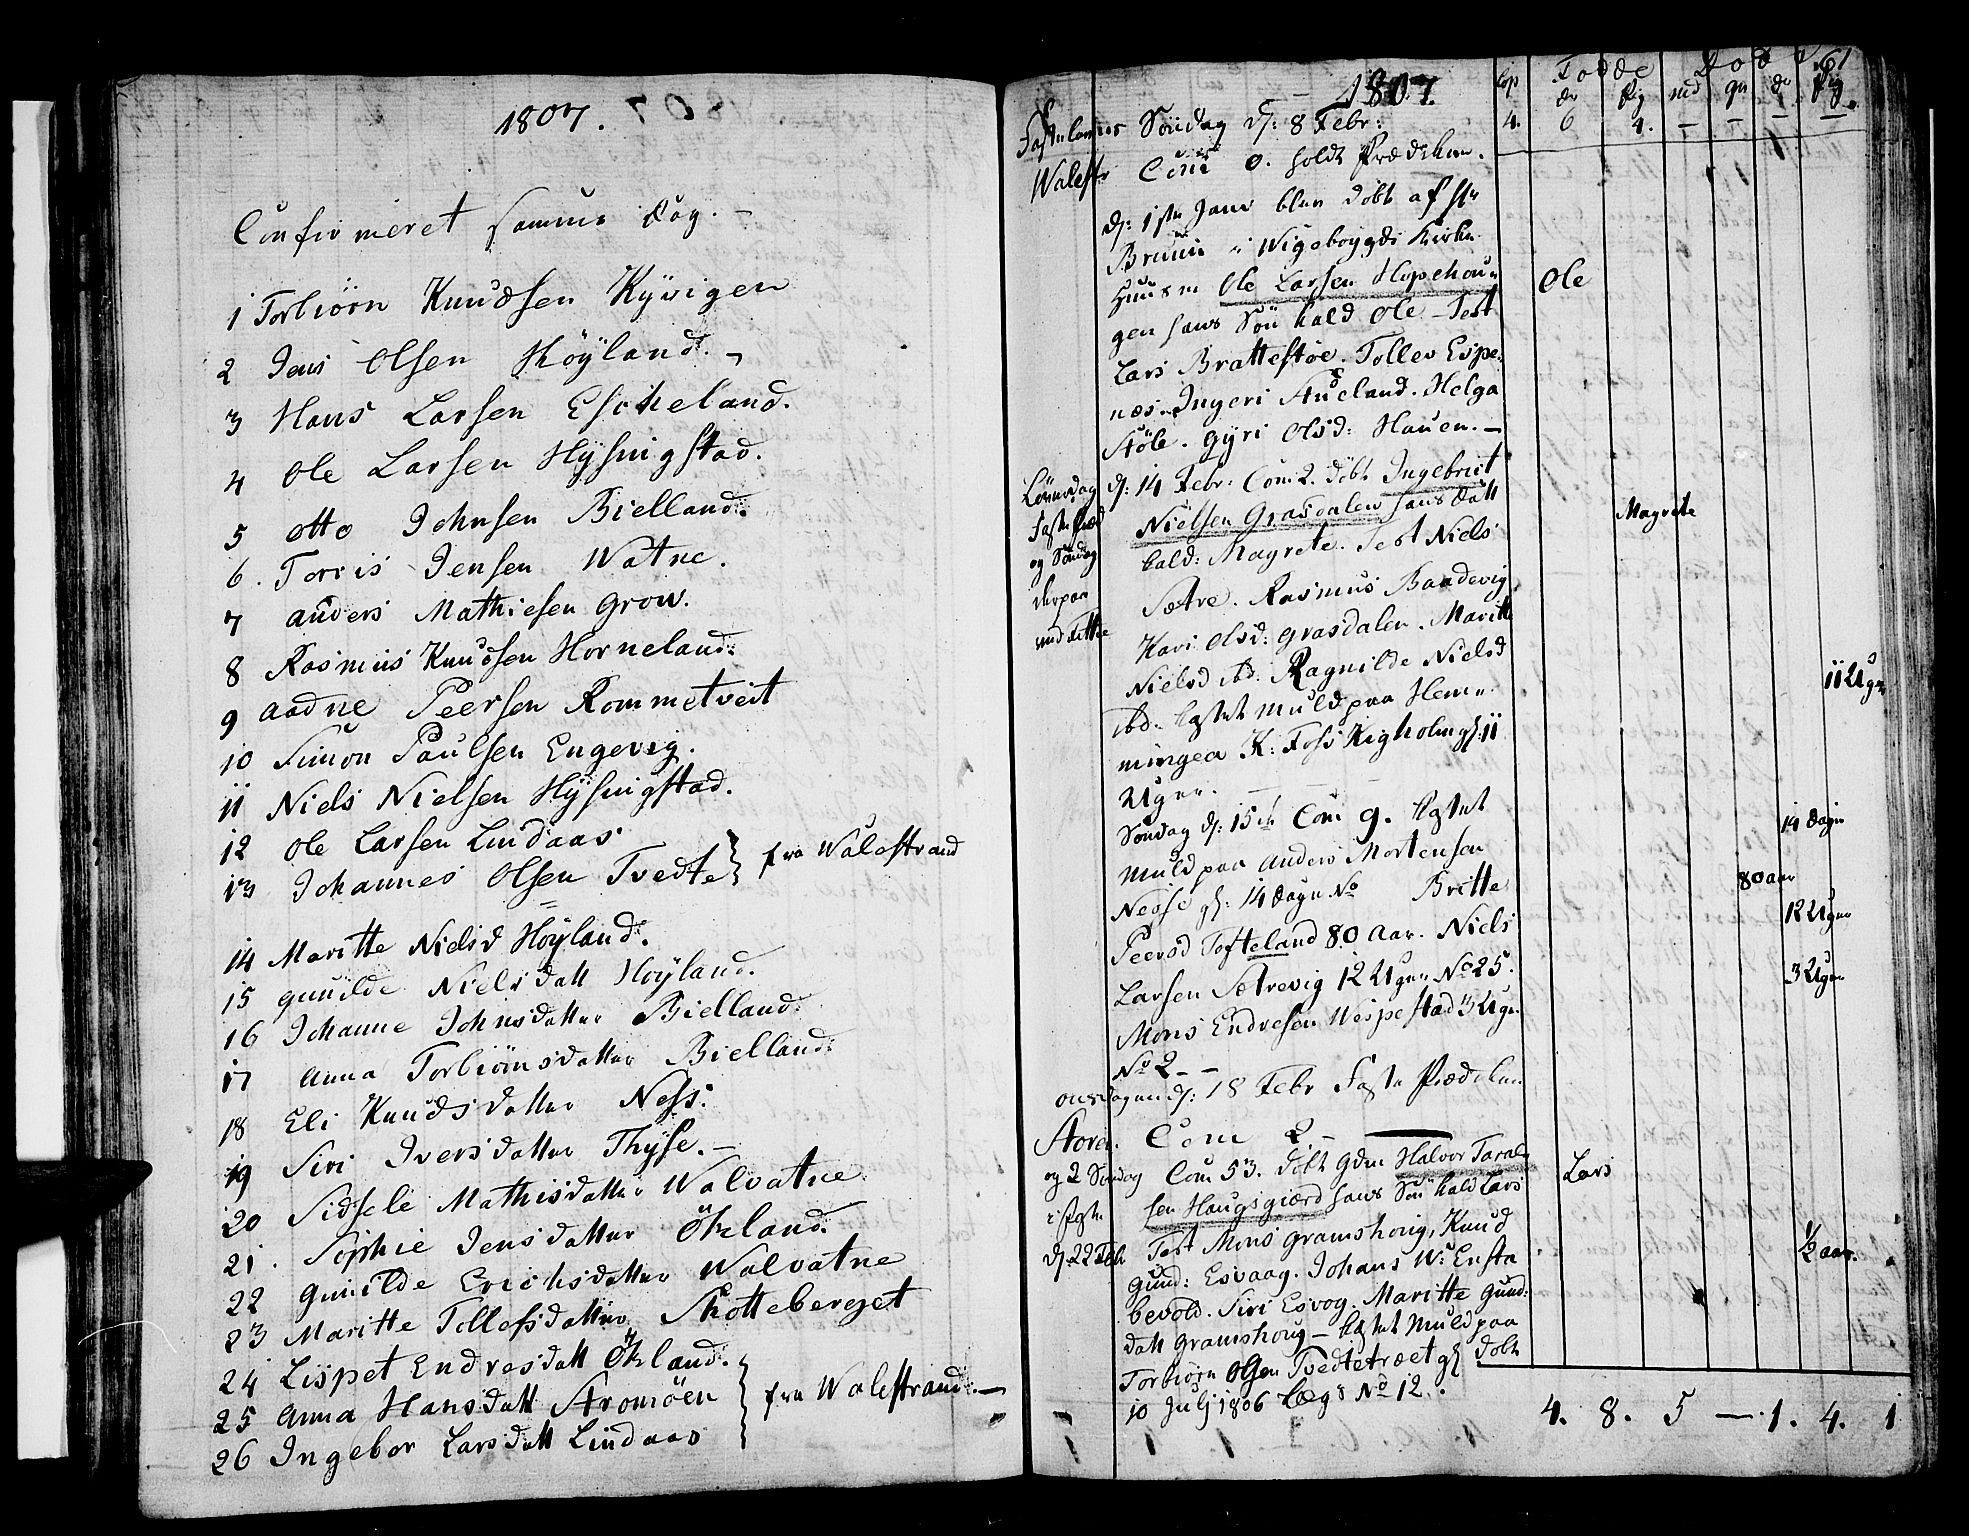 1807.
Confirmeret samme Dag. –
1 Torbiörn Knudsen Kyvigen
2 Jens Olsen Höyland. –
3 Hans Larsen Eskeland.
4 Ole Larsen Hysingstad.
5 Otto Johnsen Bielland.
6. Torris Jensen Watne.
7 Anders Mathiesen Grow.
8 Rasmus Knudsen Horneland.
9 Aadne Peersen Rommetveit
10 Simon Paulsen Engevig.
11 Niels Nielsen Hysingstad.
12 Ole Larsen Lindaas
13 Johannes Olsen Tvedte } fra Walestrand
14 Maritte Nielsd Höyland.
15 Gunilde Nielsdatt Höyland.
16 Johanne Johnsdatter Bielland.
17 Anna Torbiörnsdatter Bielland.
18 Eli Knudsdatter Ness.
19 Siri Iversdatter Thyse. –
20 Sidsele Mathisdatter Walvatne
21. Sophie Jensdatter Ökland.
22 Gunilde Erichsdatter Walvatne
23 Maritte Tollefsdatter Skotteberget
24 Lispet Endresdatt Ökland.
25 Anna Hansdatt Stromöen } fra Walestrand. –
26 Ingebor Larsdatt Lindaas
1807.
61
Födde Döde
Cop Dr Pig md qu dr Pig
4. 6 4. – – 1 –
Fastelavns Söndag d: 8 Febr:
Walestr Com 0. holdt Prædiken.
d: 1ste Janv blev döbt af Hr
Bruun i Wigeböygds Kirke
Huusm Ole Larsen Hopehou-
gen hans Sön kald Ole – Test
Lars Bratteftöe. Tollev Espe-
næs. Ingeri Aueland. Helga
Stöle. Gyri Olsd: Hauen. –
Ole
Löverdag d: 14 Febr: Com 2. döbt Ingebrict
Faste Præd Nielsen Grasdalen hans Datt
og Söndag kald: Magrete. Test Niels
derpaa Sætre. Rasmus Baadevig
ved Fittie Kari Olsd: Grasdalen. Maritte
Nielsd ibd: Ragnilde Nielsd
ibd. kastet Muld paa Hem-
mingea K: Foss Kigholm gl. 11
Uger. –
Magrete
11 Uger
Söndag d: 15de Com 9. kastet
Muld paa Anders Mortensen
Nesse gl: 14 Dage No Britte
Peersd Tofteland 80 Aar. Niels
Larsen Sætrevig 12 Uger No 25.
Mons Endresen Wespestad 3 Uger
No 2 – –
14 Dage
80 aar
12 Uger
3 Uger
Onsdagen d: 18 Febr Faste Prædiken
Storen. Com 2. –
og 2 Söndag Com 53. döbt Gdm Halvor Taral-
i Faste sen Haugsgiærd hans Sön kald Lars
d. 22 Febr Test Mons Gramshoug, Knud
Gund: Esvaag. Johans Ws Ensta
bevold. Siri Esvog. Maritte Gund:
datt Gramshoug – kastet Muld paa
Torbiörn Olsen Tvedtetræet gl döbt
10 Julj 1806 Læg No 12.
Lars
½ aar.
4. 8. 5 – 1. 4. 1